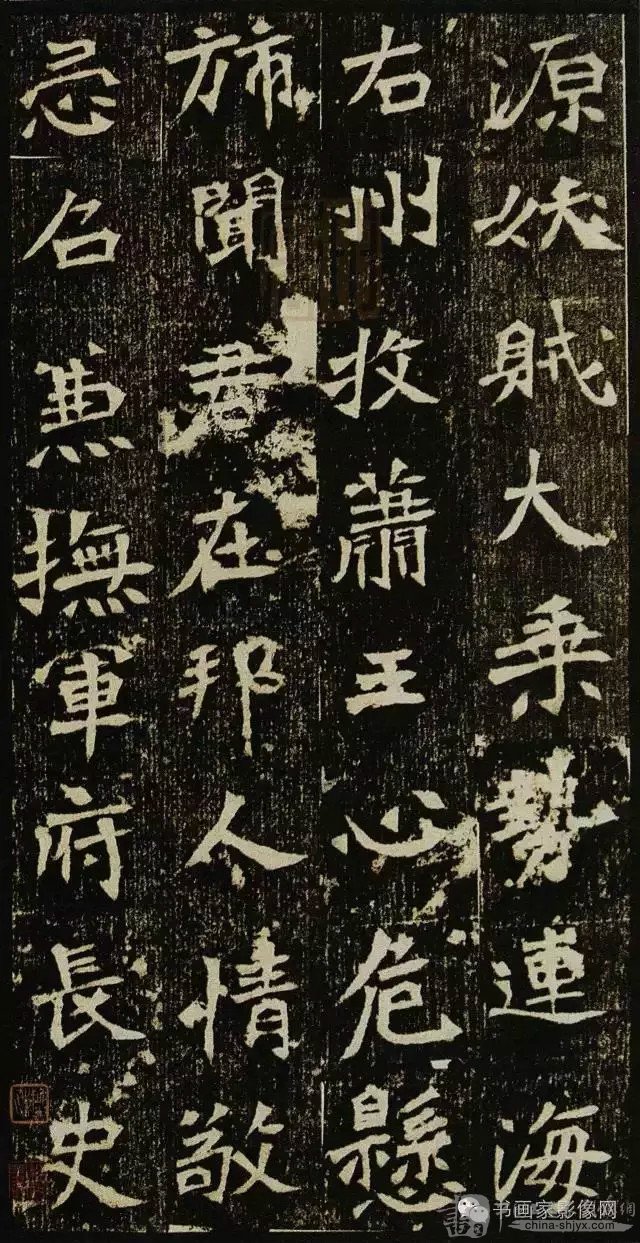 源妖賊大乗勢連海
右州牧蕭王心危懸
旆聞君在邦人情敬
忌召兼撫軍府長史
书画家影像网
china-shjyx.com